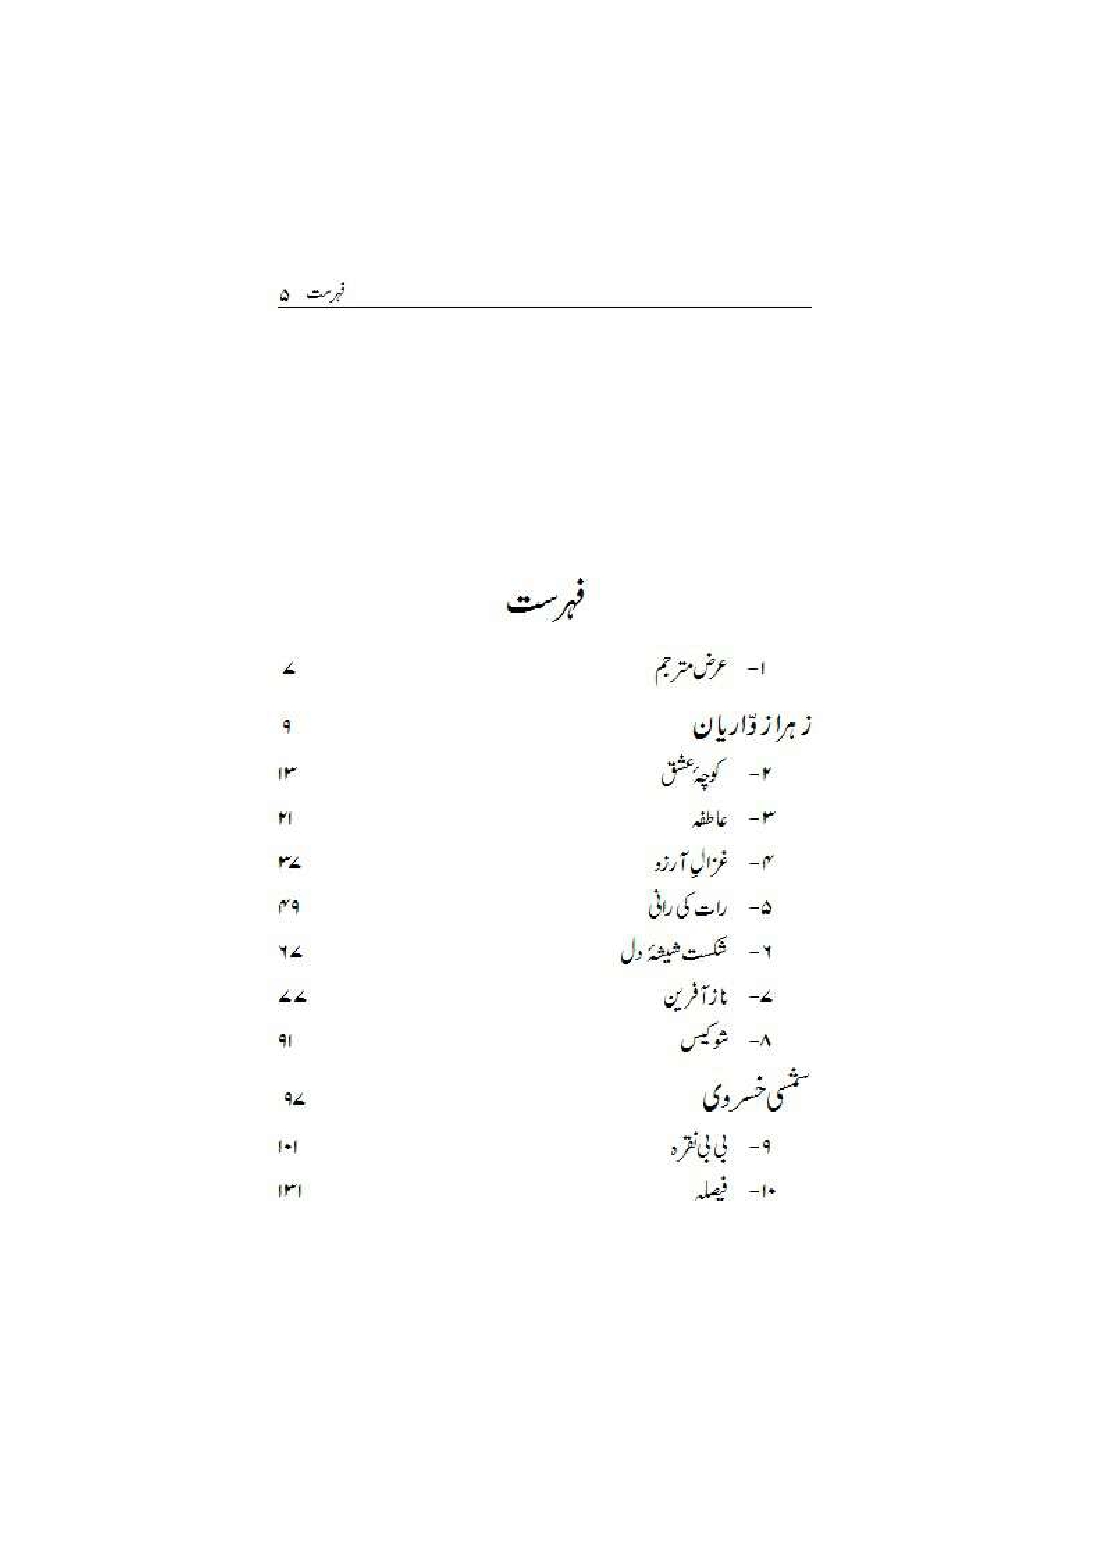 فہرست ۵
فہرست
۱- عرض مترجم ۷
زہرا زوّاریان ۹
۲- کوچۂ عشق ۱۳
۳- عاطفہ ۲۱
۴- غزالِ آرزو ۳۷
۵- رات کی رانی ۴۹
۶- شکست شیشۂ دل ۶۷
۷- ناز آفرین ۷۷
۸- شوکیس ۹۱
شمسی خسروی ۹۷
۹- بی بی نقرہ ۱۰۱
۱۰- فیصلہ ۱۳۱